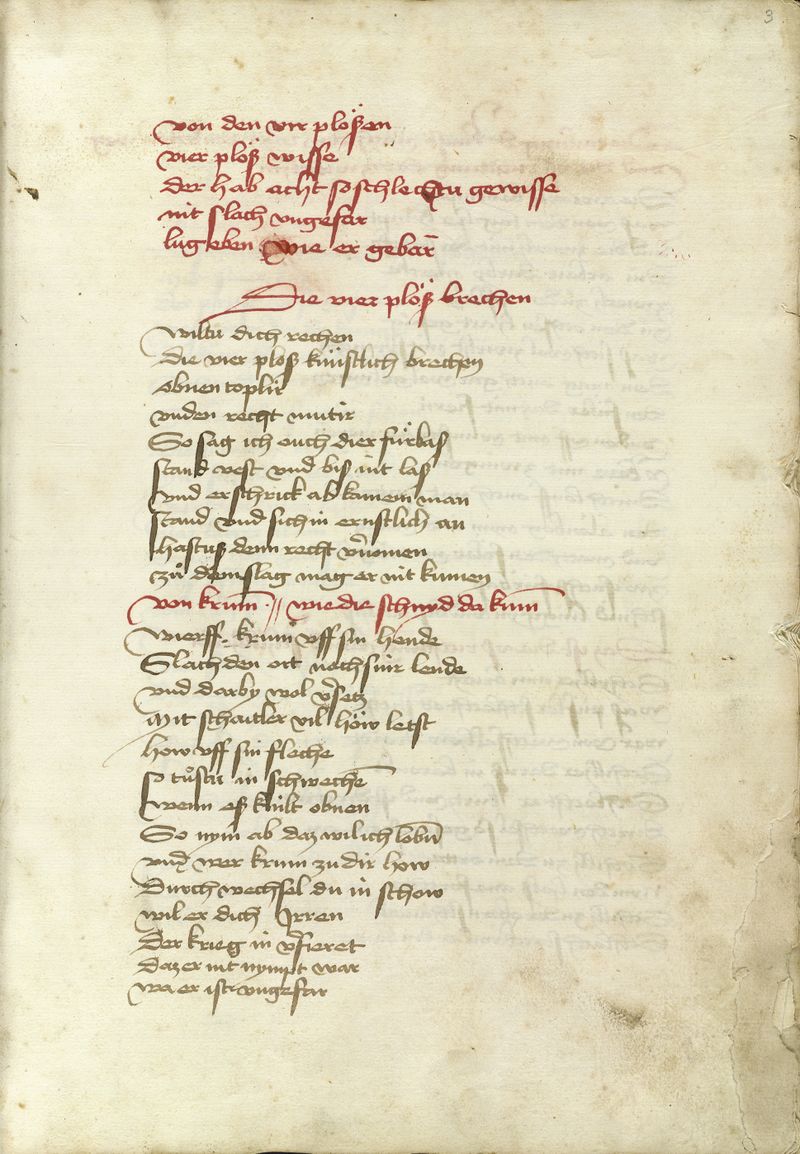 3
von den vir plößen
vier plöß wisse
der hab acht so schlechtu gewisse
nit slach vngefar
lug eben wie er gebar̄
Die vier plöß brechen
wiltu dich rechen
die vier ploß künstlich brechen
obnen toplir
vnden recht mutir
So sag ich ouch dier fürbas
stand vest vnd bis nit las
vnd erschrick ab kainem man
stand vnd sich in ernstlich an
hastuß denn recht v̄nomen
zů dem slag mag er nit kumen
von krum̄ · // wie die schnyd da kum̄
wierff krum vff sin hende
Slach den ort nach sinr lende
vnd darby wol v̄setz
Mit schaitler vil höw letst
how vff sin fleche
so tůstu in schwechē
wenn eß knült obnen
So nym ab daz wil ich lobn̄
vnd wer krum zu dir how
Durch wechsel du in schow
wil er dich Irren
Der krieg in v̄fieret
daz er nit nympt war
wa er ist vngefar